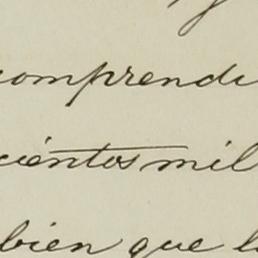 comprendi
cientos mil
bien que l